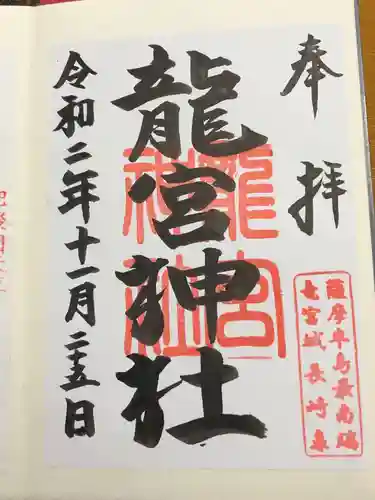 奉拝
薩摩半島最南端
竜宮城長崎鼻
龍宮神社
龍宮神社
令和二年十一月二十五日